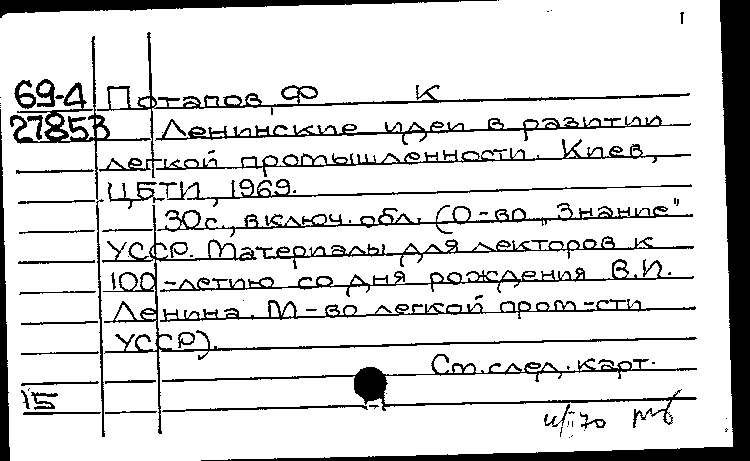 I
69-4 Потапов, Ф К
27853 Ленинские идеи в развитии
легкой промышленности. Киев,
ЦБТИ, 1969.
30с., включ. обл. (О-во „Знание"
УССР. Материалы для лекторов к
100-летию со дня рождения В.И.
Ленина. М-во легкой пром-сти
УССР).
См. след. карт.
15